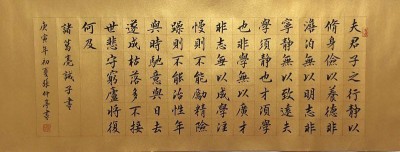 夫君子之行靜以
脩身儉以養德非
澹泊無以明志非
寧靜無以致遠夫
學須靜也才須學
也非學無以廣才
非志無以成學淫
慢則不能勵精險
躁則不能治性年
與時馳意與日去
遂成枯落多不接
世悲守窮廬將復
何及
諸葛亮誡子書
庚寅年初夏張仲亭書